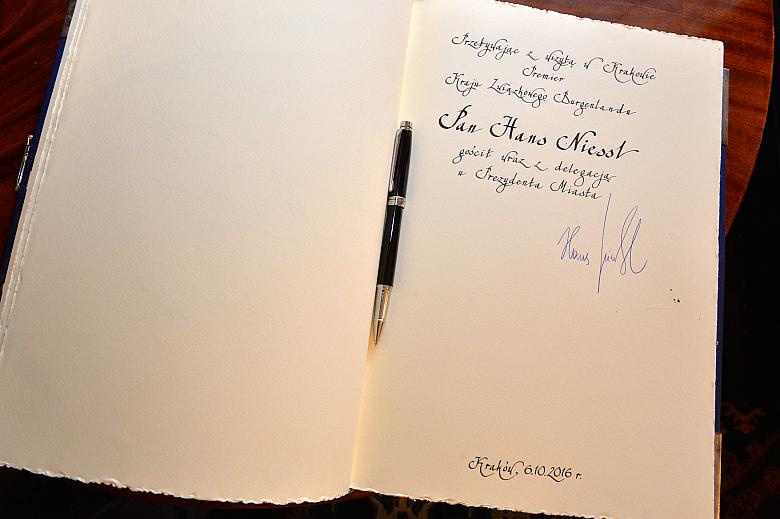 Przebywając z wizytą w Krakowie
Premier
Kraju Związkowego Burgenlandu
Pan Hans Niessl
gościł wraz z delegacją
u Prezydenta Miasta
Hans Niessl
Kraków, 6.10.2016 r.